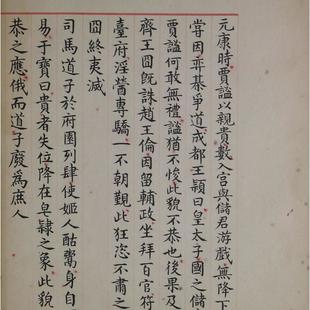 元康時賈謐以親貴數入宮與儲君游戲無降下
嘗因弈棊爭道成都王穎曰皇太子國之儲
賈謐何敢無禮謐猶不悛此貌不恭也後果及
齊王冏既誅趙王倫因留輔政坐拜百官符
臺府淫醟專驕一不朝覲此狂恣不肅之
冏終夷滅
司馬道子於府園列肆使姬人酤鬻身自
易于寶曰貴者失位降在皂隸之象此貌
恭之應俄而道子廢為庶人